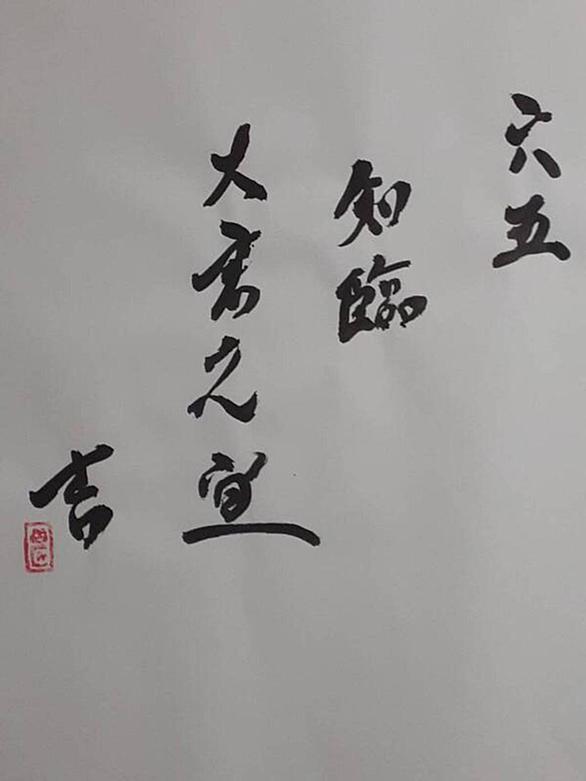 六五
知臨
大君之宜
吉